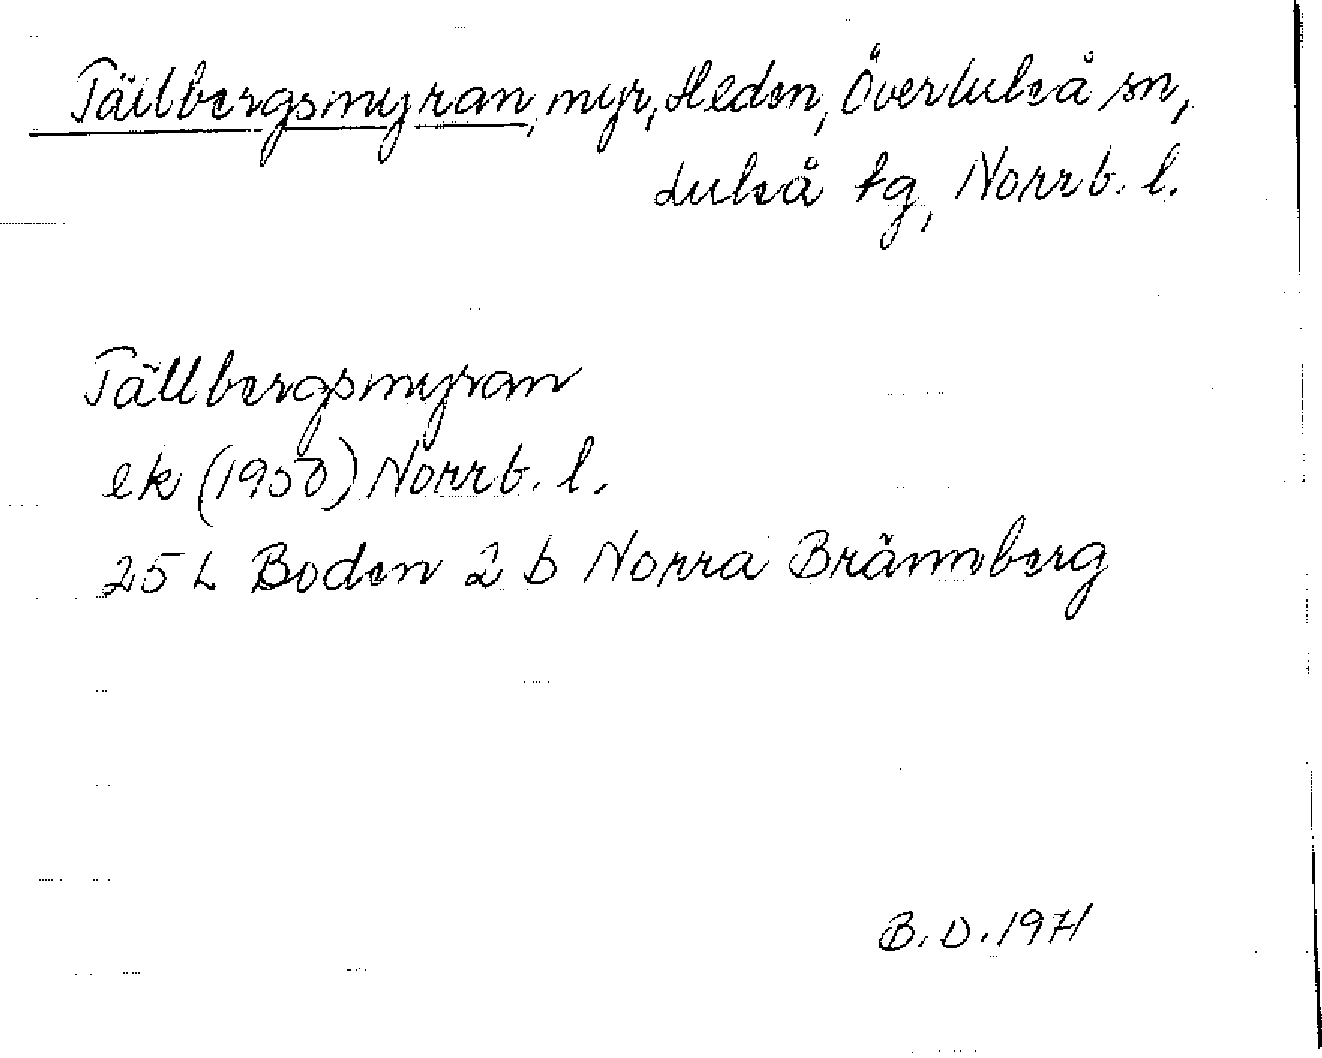 Tällbergsmyran, myr, Heden, Överluleå sn,
Luleå tg, Norrb. l.
Tällbergsmyran
ek (1950) Norrb. l.
25 L Boden 2 b Norra Brännberg
B. D. 1971